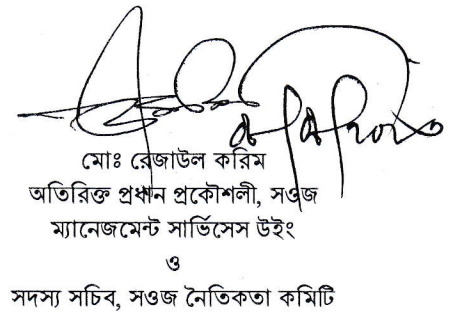 মোঃ রেজাউল করিম
অতিরিক্ত প্রধান প্রকৌশলী, সওজ
ম্যানেজমেন্ট সার্ভিসেস উইং
ও
সদস্য সচিব, সওজ নৈতিকতা কমিটি